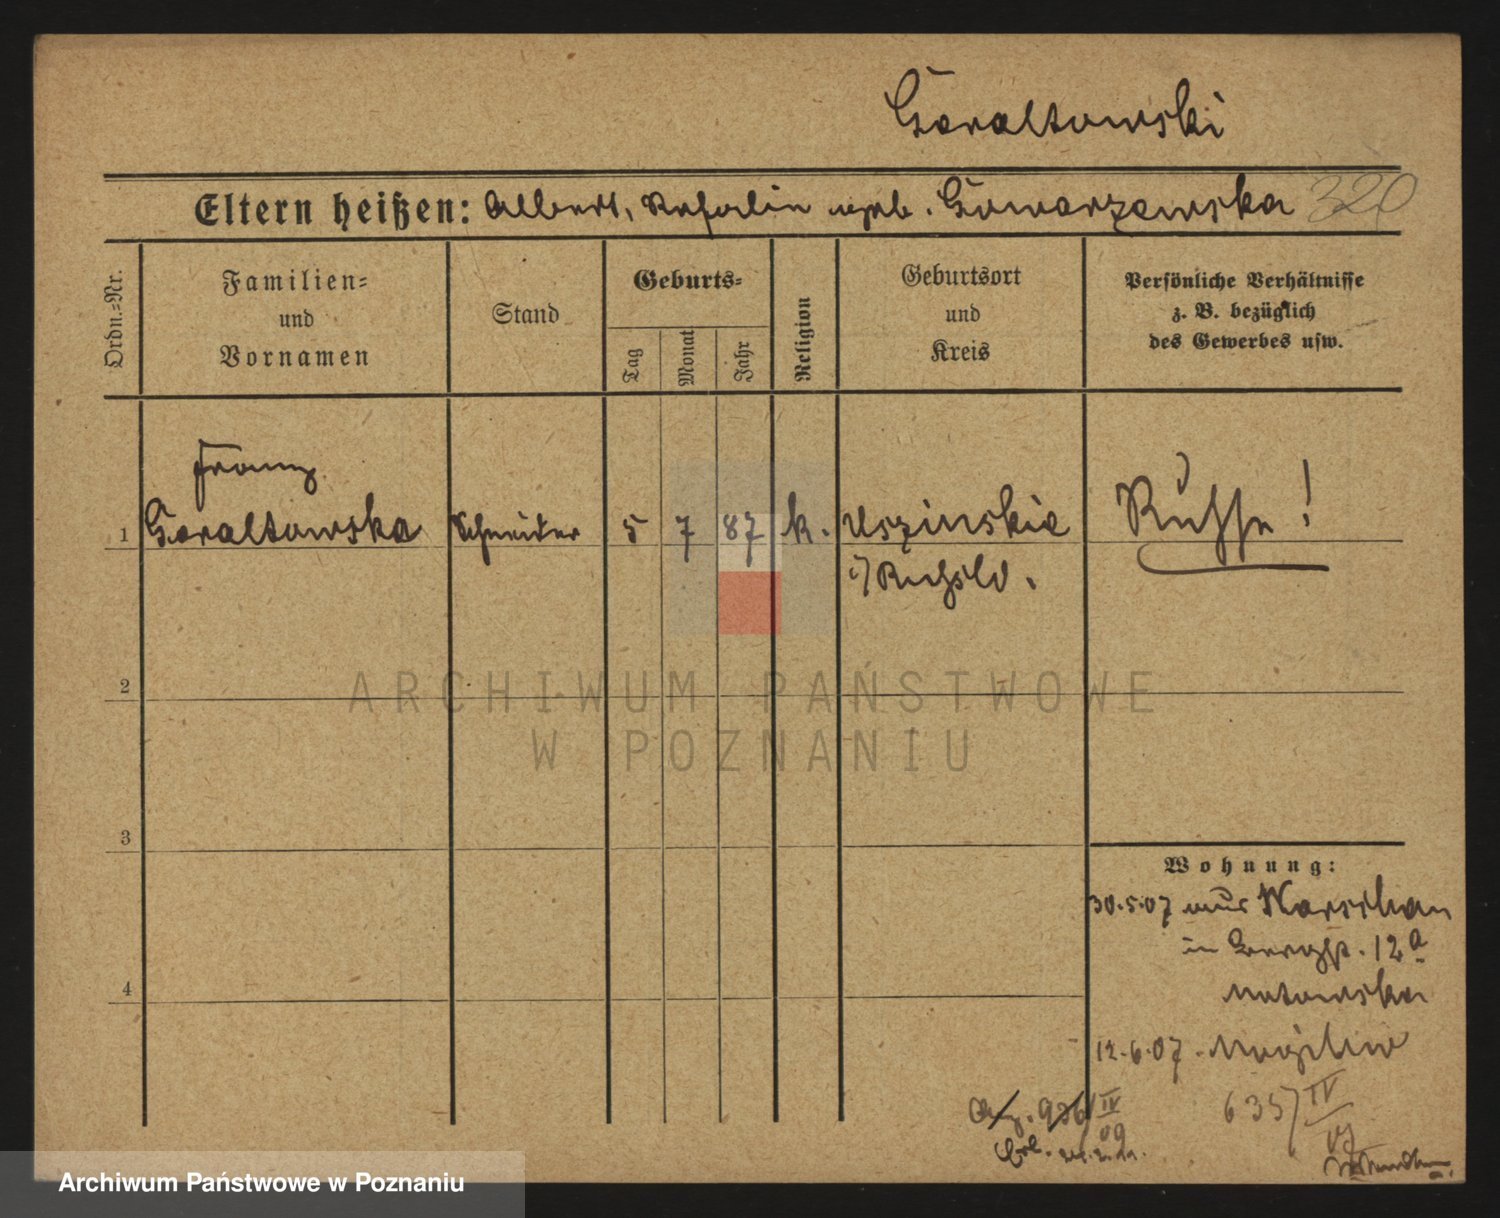 Goraltowski
Eltern heißen: Albert, Rosalie geb. Gowarzewska 320
Ordn.-Nr.
Familien-
und
Vornamen
Stand
Geburts-
Tag
Monat
Jahr
Religion
Geburtsort
und
Kreis
Persönliche Verhältnisse
z. B. bezüglich
des Gewerbes usw.
Franz
1 Goraltowska Schneider 5 7 87 k. Uszinskie Russe!
i/ Rußld.
2
3
4
Wohnung:
30.5.07 aus Warschau
in 12a
12.6.07
926/IV 09
635/IV 07
ARCHIWUM PAŃSTWOWE
W POZNANIU
Archiwum Państwowe w Poznaniu